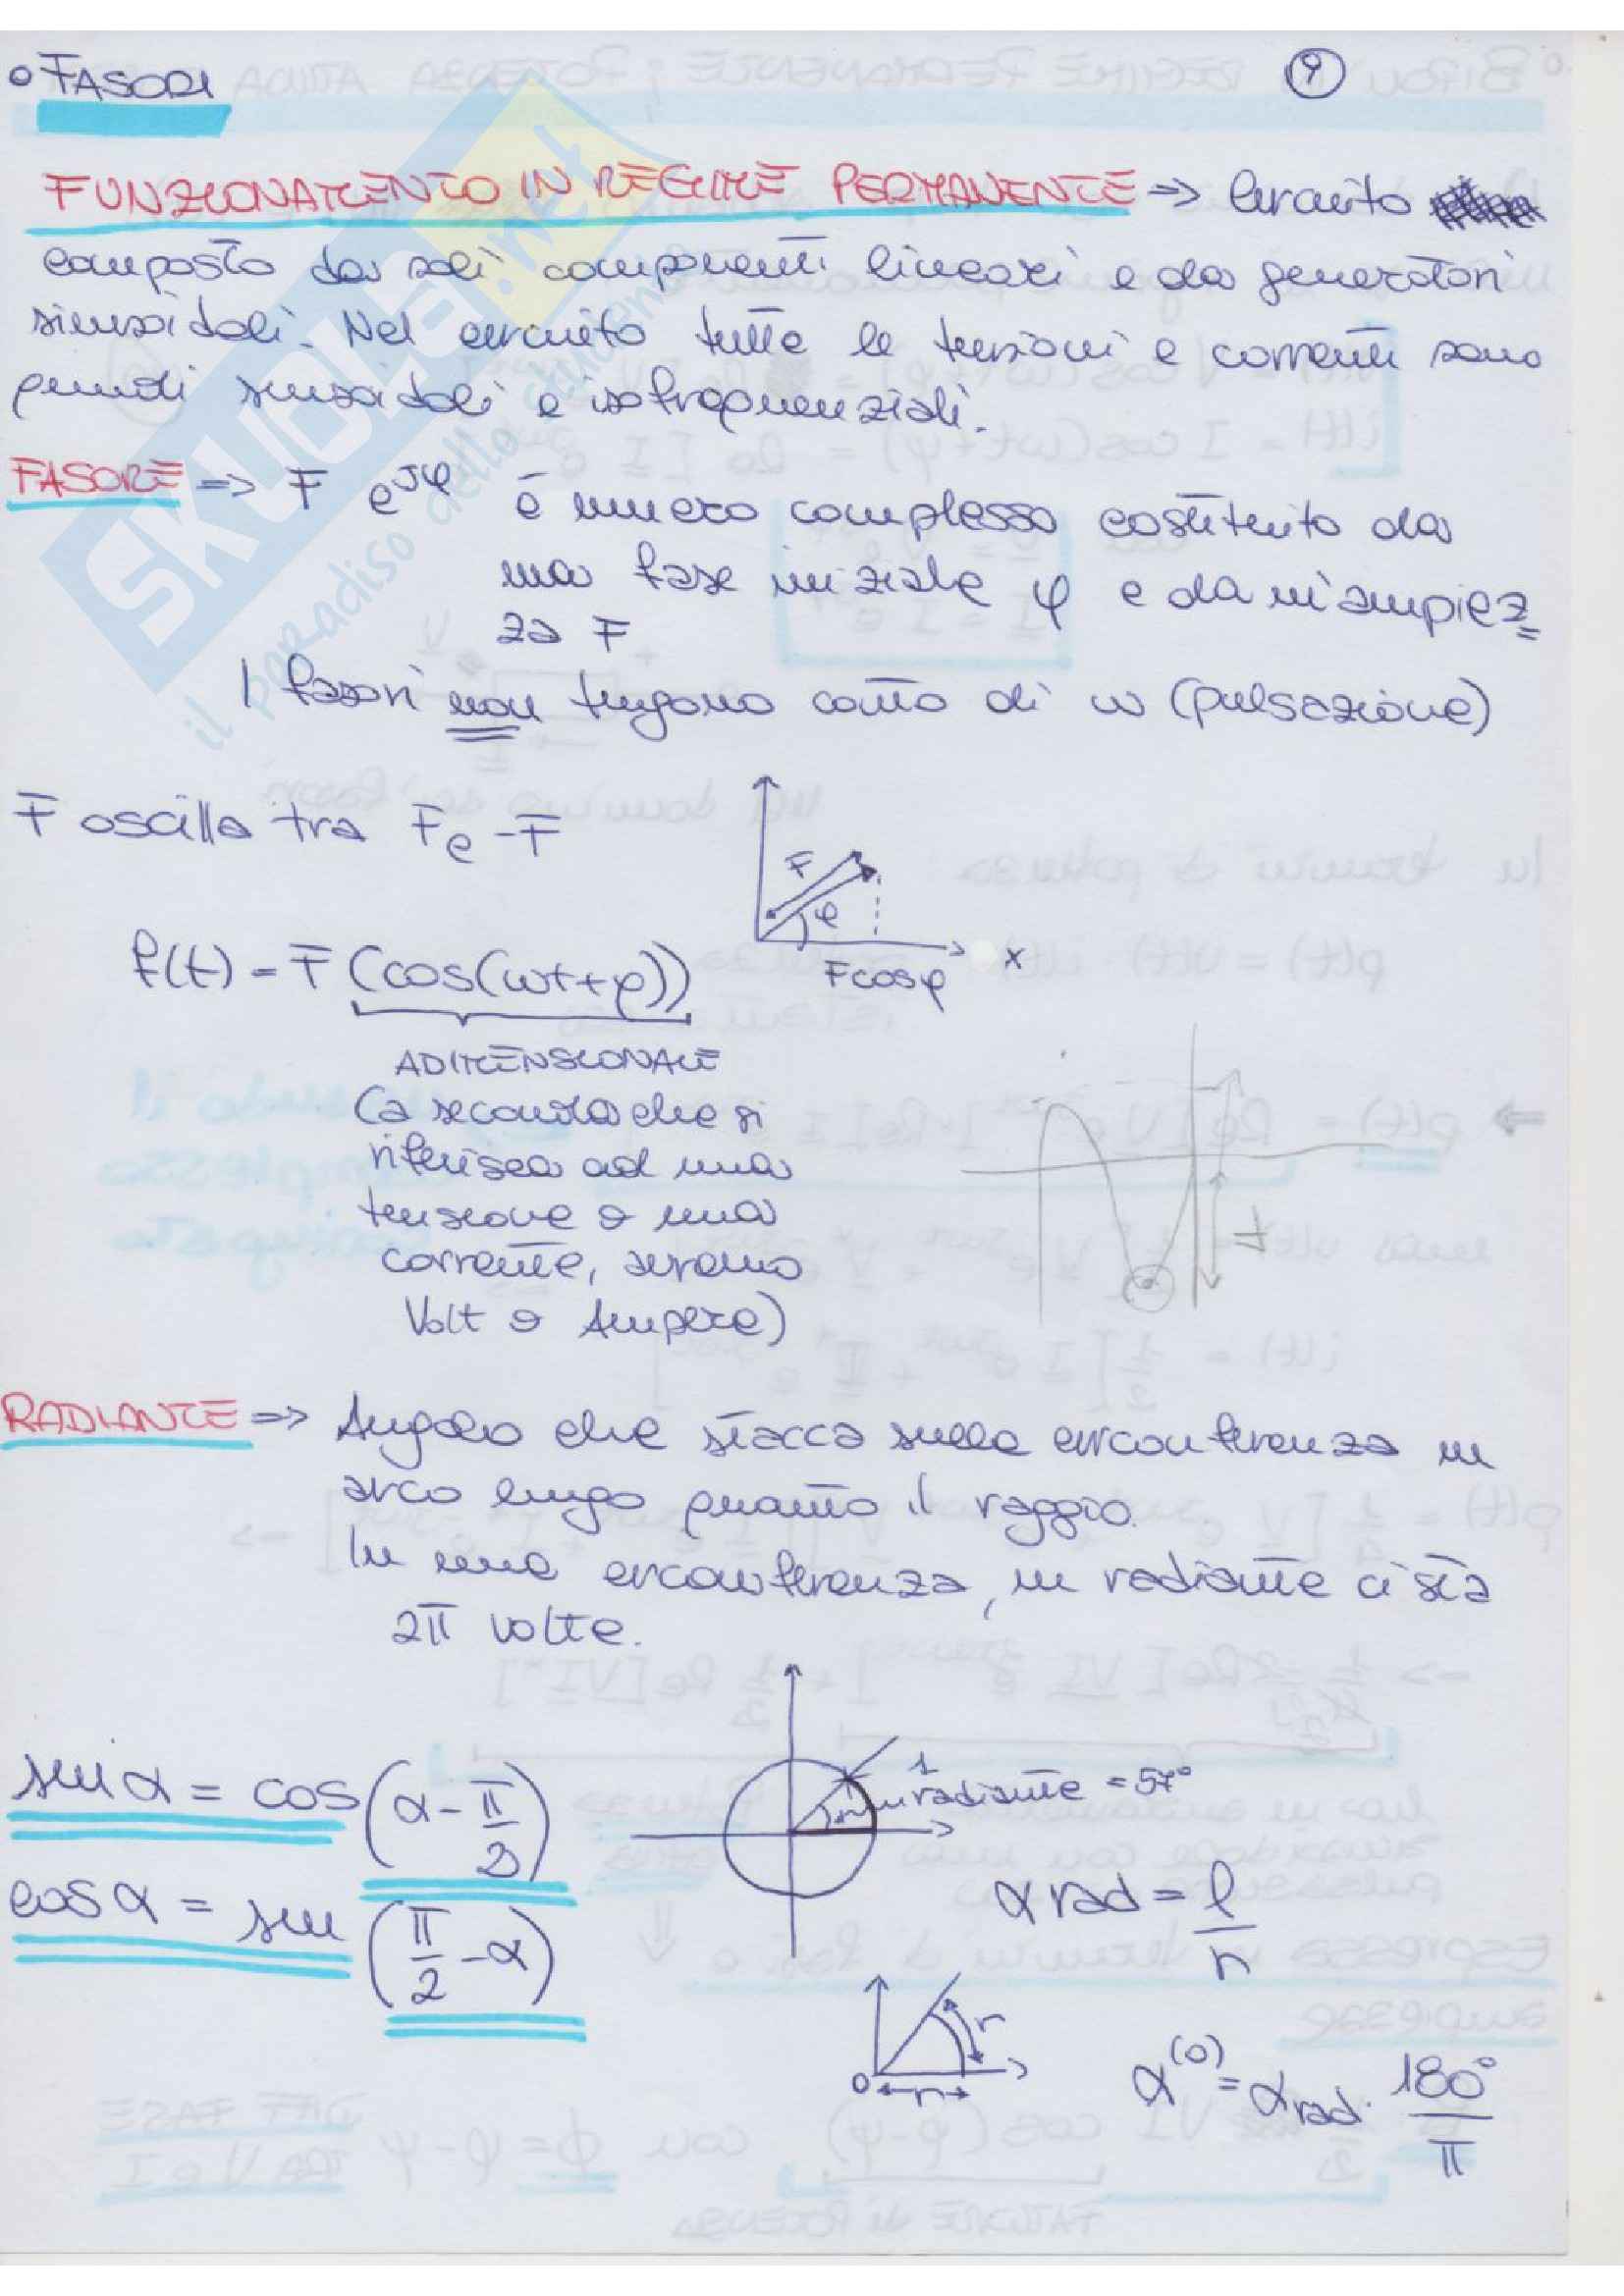 ° FASORI
9
FUNZIONAMENTO IN REGIME PERMANENTE => Circuito
composto da soli componenti lineari e da generatori
sinusoidali. Nel circuito tutte le tensioni e correnti sono
quindi sinusoidali e isofrequenziali.
FASORE => F e^jφ è numero complesso costituito da
una fase iniziale φ e da un'ampiez
za F
I fasori non tengono conto di ω (pulsazione)
F oscilla tra F e -F
F
φ
x
F cosφ
f(t) = F (cos(ωt+φ))
ADIMENSIONALE
(a seconda che si
riferisca ad una
tensione o una
corrente, avremo
Volt o Ampere)
RADIANTE => Angolo che stacca sulla circonferenza un
arco lungo quanto il raggio.
In una circonferenza, un radiante ci sta
2π volte.
sin α = cos (α - π/2)
cos α = sin (π/2 - α)
1 radiante = 57°
α rad = l/r
r
0
r
α^(°) = α rad · 180°/π
SKUOLA.net
il paradiso dello studente